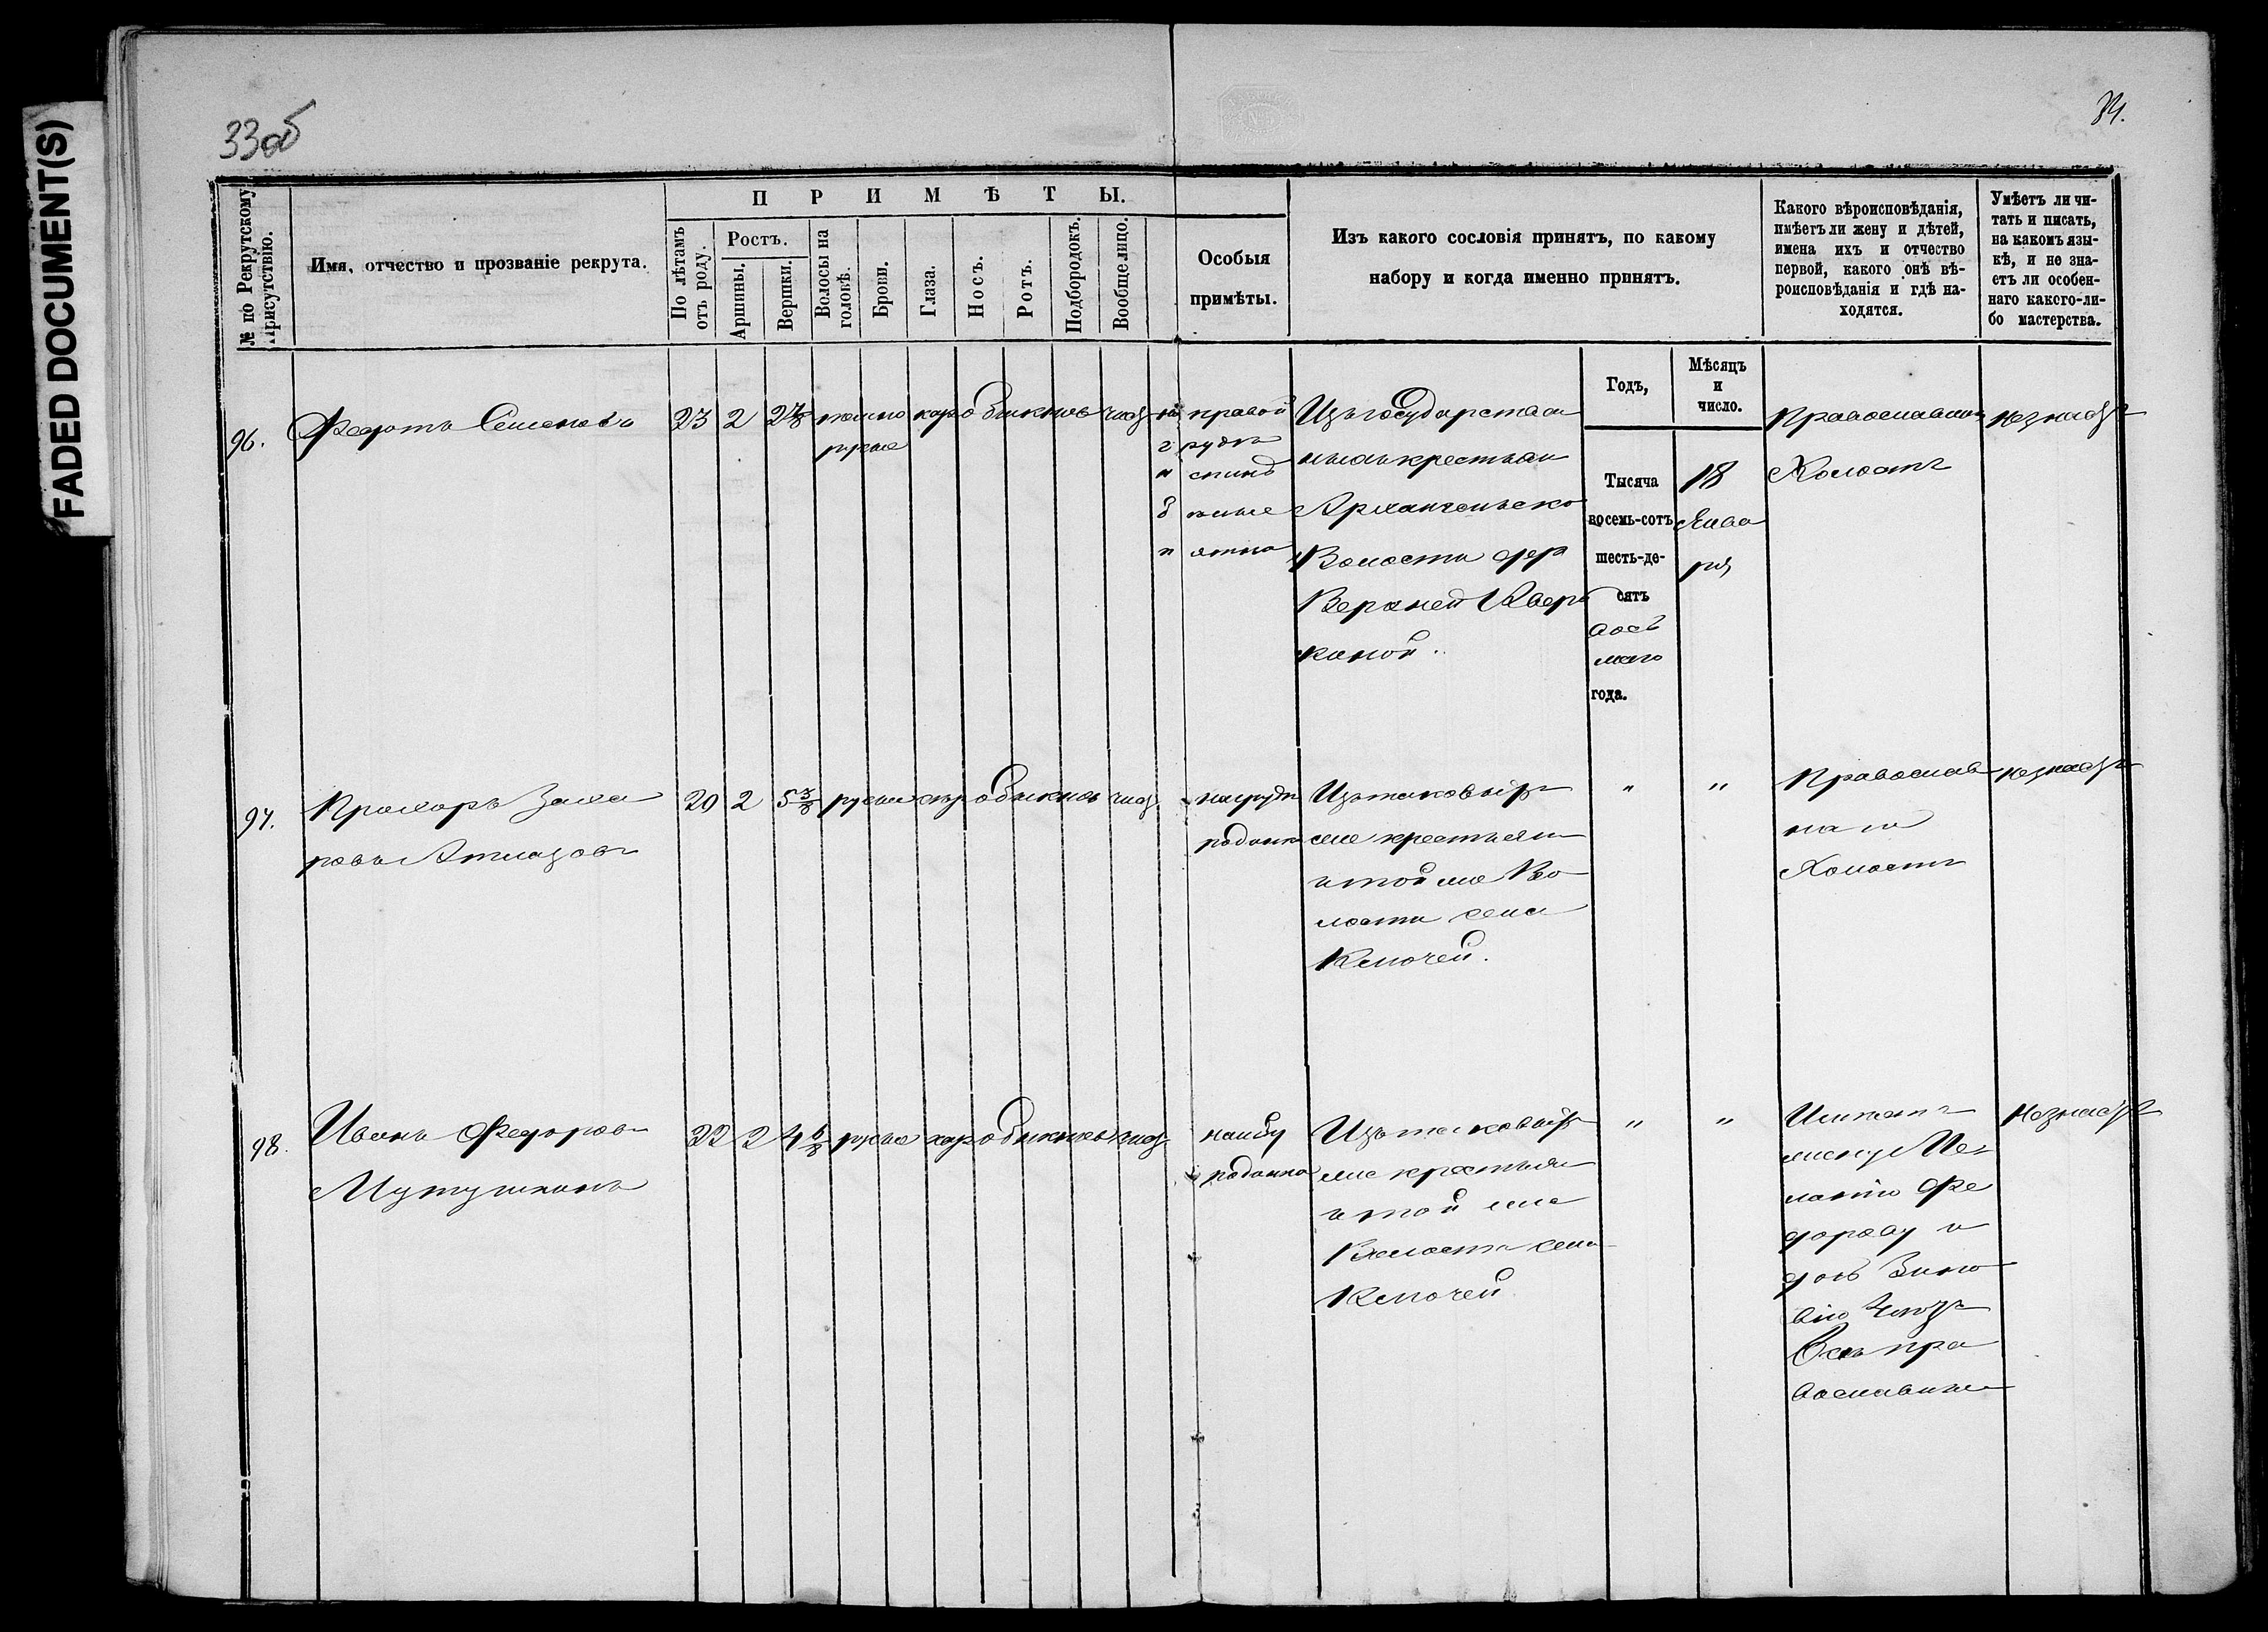 FADED DOCUMENT(S)
33об
34.
№ по Рекрутскому
Присутствію.
Имя, отчество и прозваніе рекрута.
ПРИМѢТЫ.
По лѣтамъ
отъ роду.
Ростъ.
Аршины.
Вершки.
Волосы на
головѣ.
Брови.
Глаза.
Носъ.
Ротъ.
Подбородокъ.
Вообще лицо.
Особыя
примѣты.
Изъ какого сословія принятъ, по какому
набору и когда именно принятъ.
Какого вѣроисповѣданія,
имѣетъ ли жену и дѣтей,
имена ихъ и отчество
первой, какого онѣ вѣ-
роисповѣданія и гдѣ на-
ходятся.
Умѣетъ ли чи-
тать и писать,
на какомъ язы-
кѣ, и не зна-
етъ ли особен-
наго какого-ли-
бо мастерства.
Годъ,
Мѣсяцъ
и
число.
96.
Федотъ Семеновъ
23 2 2 7/8 темно кар обыкнов чист
русые
на правой
грудѣ
и спинѣ
бѣлые
пятна
Изъ государствен
ныхъ крестьян
Архангельско
Волости дер
Верхней
киной.
Тысяча
восемь-сотъ
шесть-де-
сятъ
вось
маго
года.
18
Янва
ря
Православнаго
Холостъ
незнаетъ
97.
Прохоръ Заха
ровъ
20 2 5 3/8 русые сѣр обыкнов чист
на груди
родинка
Изъ таковыхъ
же крестьян
и той же Во
лости села
Ключей.
" "
Православ
наго
Холостъ
незнаетъ
98.
Иванъ Федоров
Мутушкинъ
22 2 4 6/8 русые кар обыкнов чист
на лбу
родинка
Изъ таковыхъ
же крестьян
и той же
Волости села
Ключей
" "
Имѣетъ
жену Ме
ланію Фе
дорову и
дочь Зино
вію
Всѣ пра
вославные
Незнаетъ